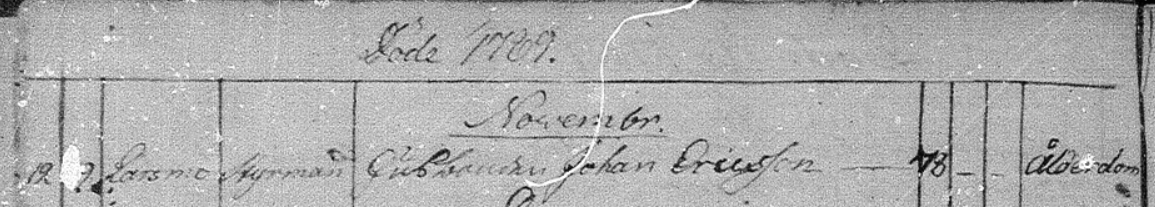 Döde 1789.
Novembr.
12 Larsmo Styrman Husbonden Johan Ericsson — 78 - - Ålderdom